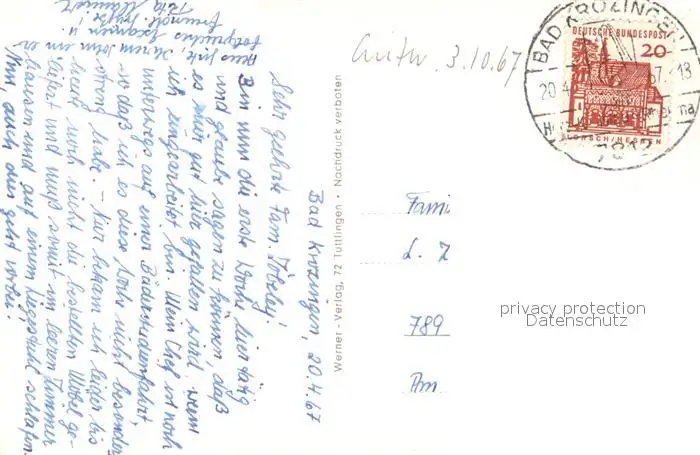 Bad Krozingen, 20.4.67
Sehr geehrte Fam.
Bin nun die erste Woche hier tätig
und glaube sagen zu können, daß
es mir gut hier gefallen wird, wenn
ich eingearbeitet bin. Mein Chef ist noch
unterwegs auf einer Bäderstudienfahrt
so daß ich es diese Woche nicht besonders
streng habe. - Hier bekam ich leider bis
heute noch nicht die bestellten Möbel ge-
liefert und muß somit im leeren Zimmer
hausen und auf einem Liegestuhl schlafen.
Nun, auch das geht vorbei!
freundl. Grüße!
Werner - Verlag, 72 Tuttlingen · Nachdruck verboten
Antw. 3.10.67
BAD KROZINGEN
20.4.67.-18
7812
DEUTSCHE BUNDESPOST
20
LORSCH/HESSEN
Fami
L. Z
789
Am
privacy protection
Datenschutz